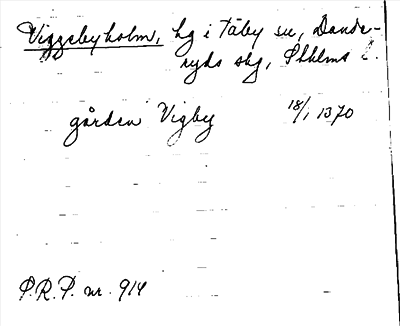 Viggebyholm, hg i Täby sn, Dande-
ryds skg, Sthlms l.
gården Vigby 18/1 1370
P.R.P. nr. 914